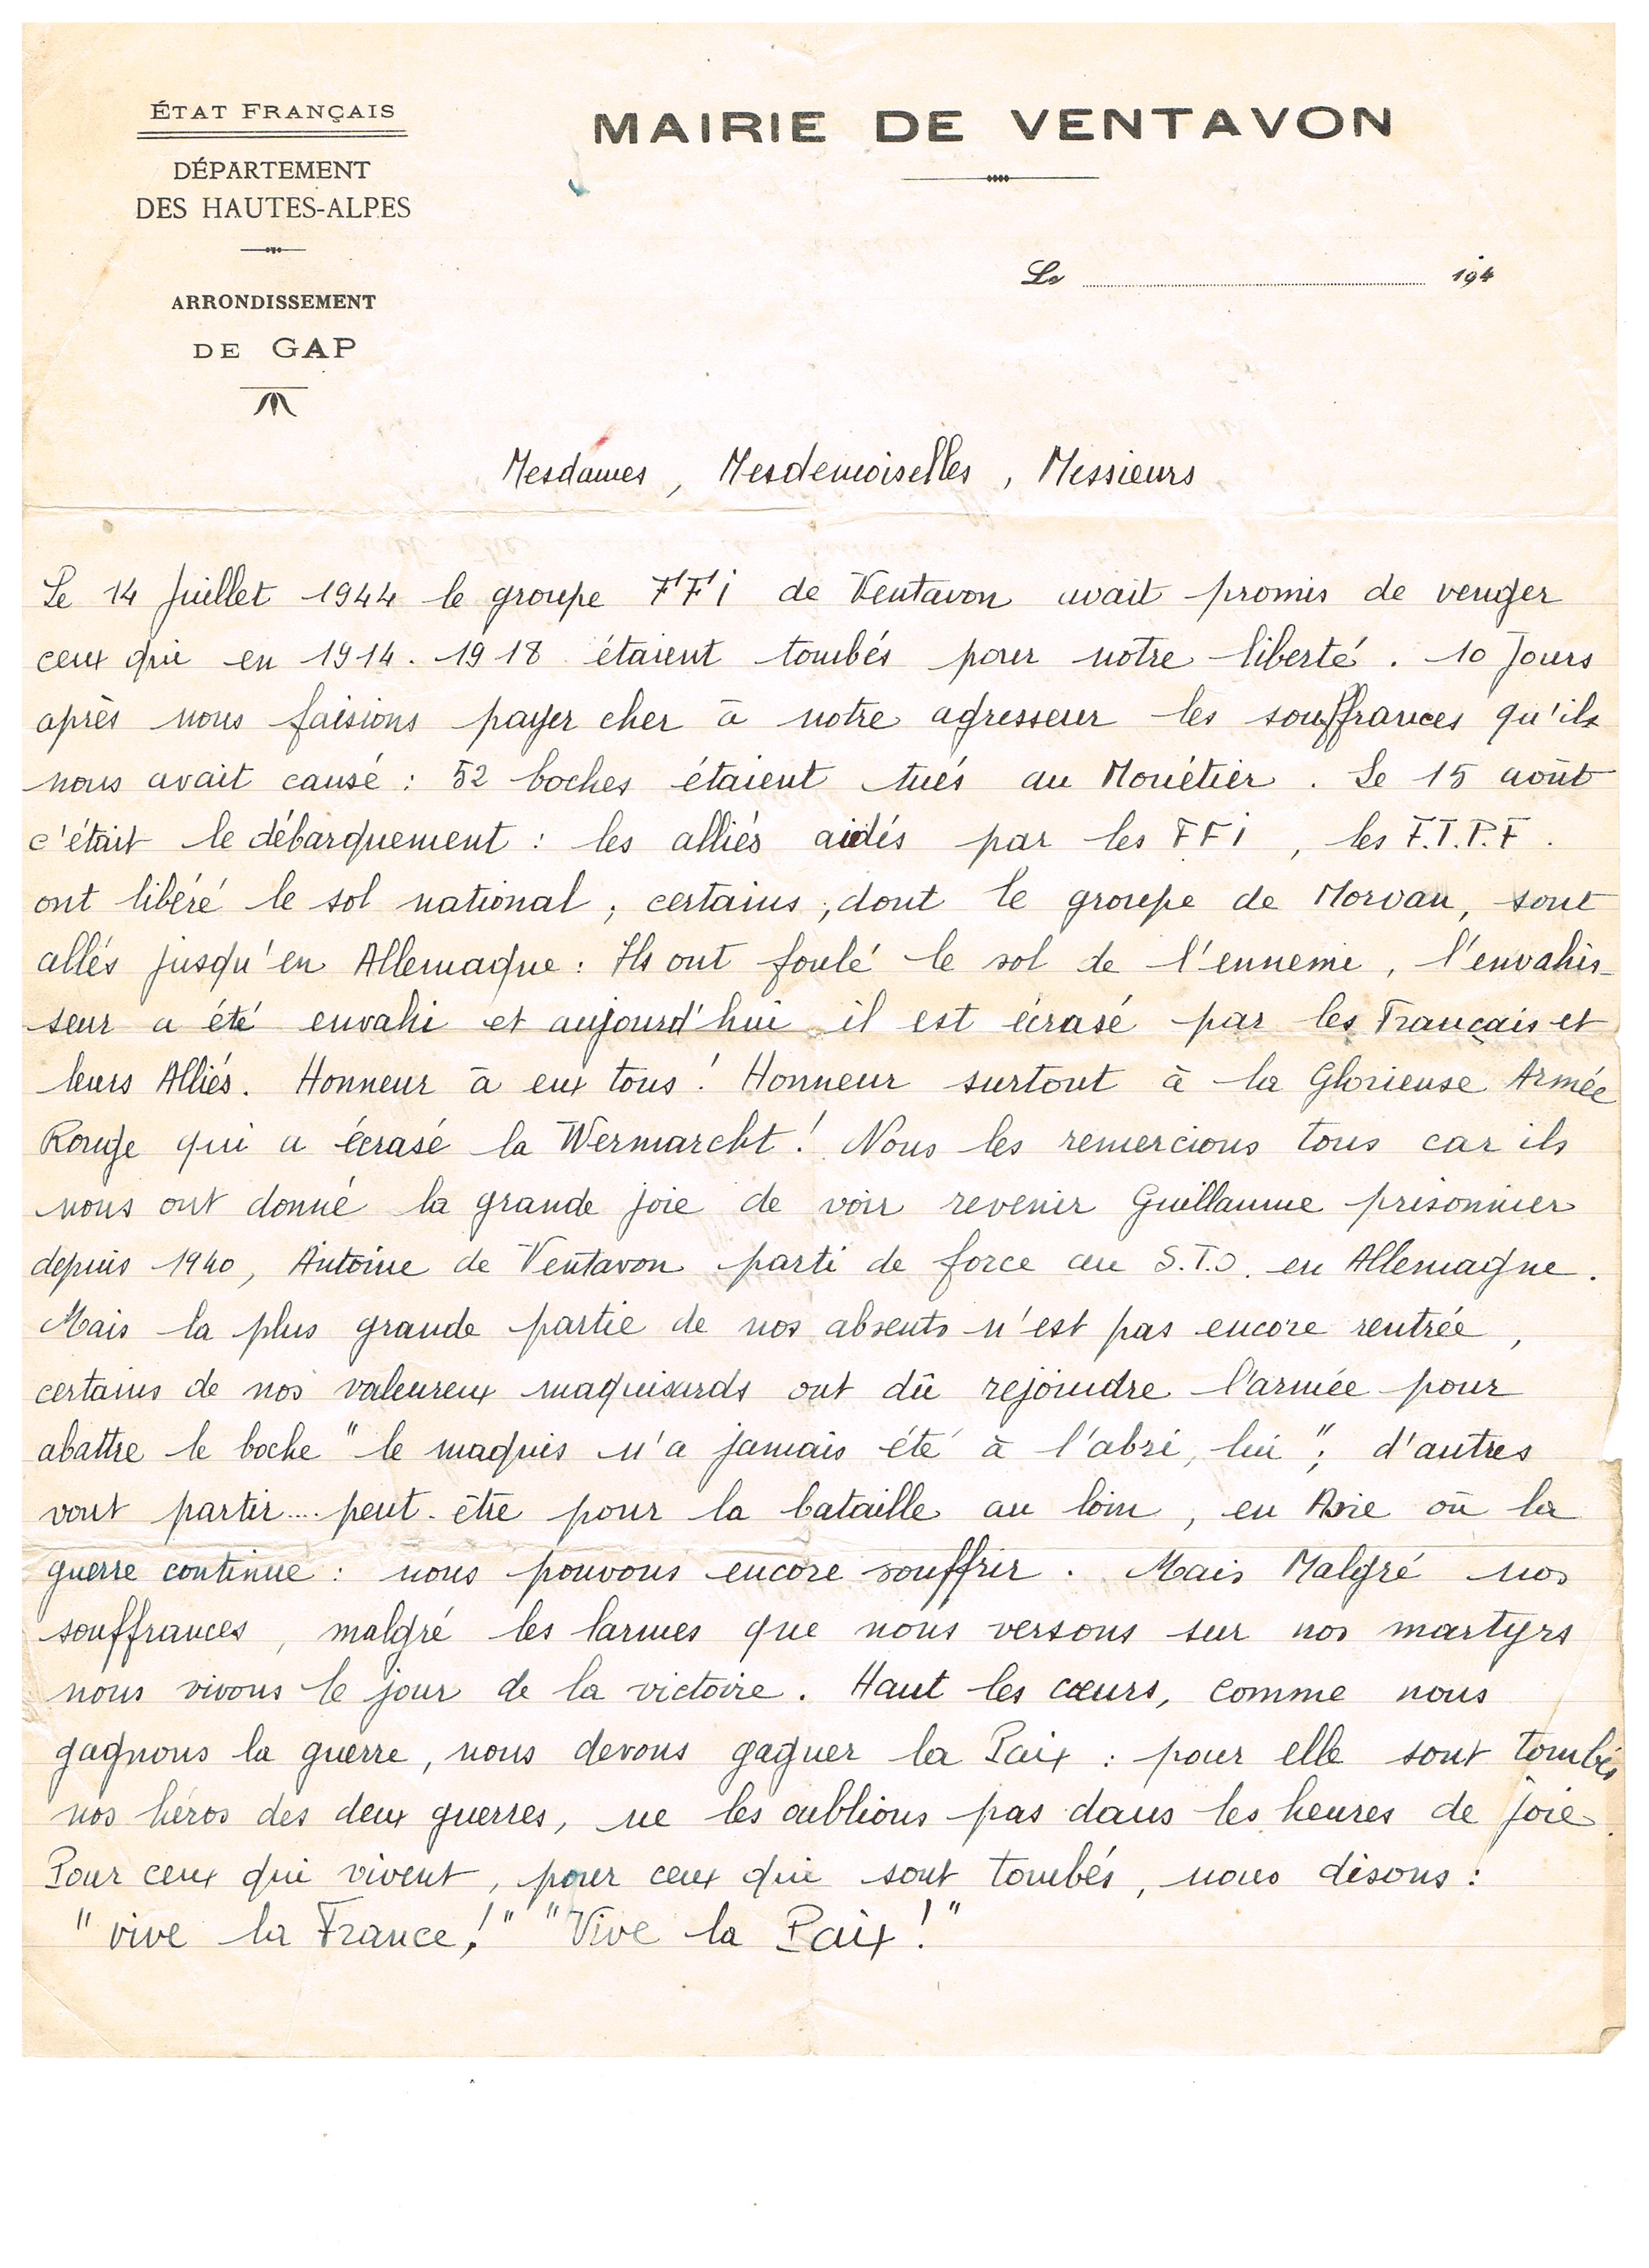 ÉTAT FRANÇAIS
DÉPARTEMENT
DES HAUTES-ALPES
ARRONDISSEMENT
DE GAP
MAIRIE DE VENTAVON
Le 194
Mesdames, Mesdemoiselles, Messieurs
Le 14 Juillet 1944 le groupe FFI de Ventavon avait promis de venger
ceux qui en 1914.1918 étaient tombés pour notre liberté. 10 Jours
après nous faisions payer cher à notre agresseur les souffrances qu'ils
nous avait causé : 52 boches étaient tués au Monétier. Le 15 août
c'était le débarquement : les alliés aidés par les FFI, les F.T.P.F.
ont libéré le sol national ; certains, dont le groupe de Morvan, sont
allés jusqu'en Allemagne : Ils ont foulé le sol de l'ennemi, l'envahis-
seur a été envahi et aujourd'hui il est écrasé par les Français et
leurs Alliés. Honneur à eux tous ! Honneur surtout à la Glorieuse Armée
Rouge qui a écrasé la Wermarcht ! Nous les remercions tous car ils
nous ont donné la grande joie de voir revenir Guillaume prisonnier
depuis 1940, Antoine de Ventavon parti de force au S.T.O. en Allemagne.
Mais la plus grande partie de nos absents n'est pas encore rentrée,
certains de nos valeureux maquisards ont dû rejoindre l'armée pour
abattre le boche "le maquis n'a jamais été à l'abri, lui" ; d'autres
vont partir.... peut-être pour la bataille au loin, en Asie où la
guerre continue : nous pouvons encore souffrir. Mais Malgré nos
souffrances, malgré les larmes que nous versons sur nos martyrs
nous vivons le jour de la victoire. Haut les cœurs, comme nous
gagnons la guerre, nous devons gagner la Paix : pour elle sont tombés
nos héros des deux guerres, ne les oublions pas dans les heures de joie.
Pour ceux qui vivent, pour ceux qui sont tombés, nous disons :
"vive la France !" "Vive la Paix !"